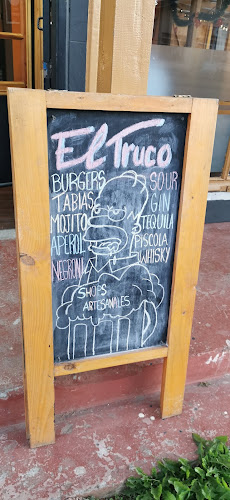 El Truco
BURGERS
TABLAS
MOJITO
APEROL
NEGRONI
SOUR
GIN
TEQUILA
PISCOLA
WHISKY
SHOPS
ARTESANALES